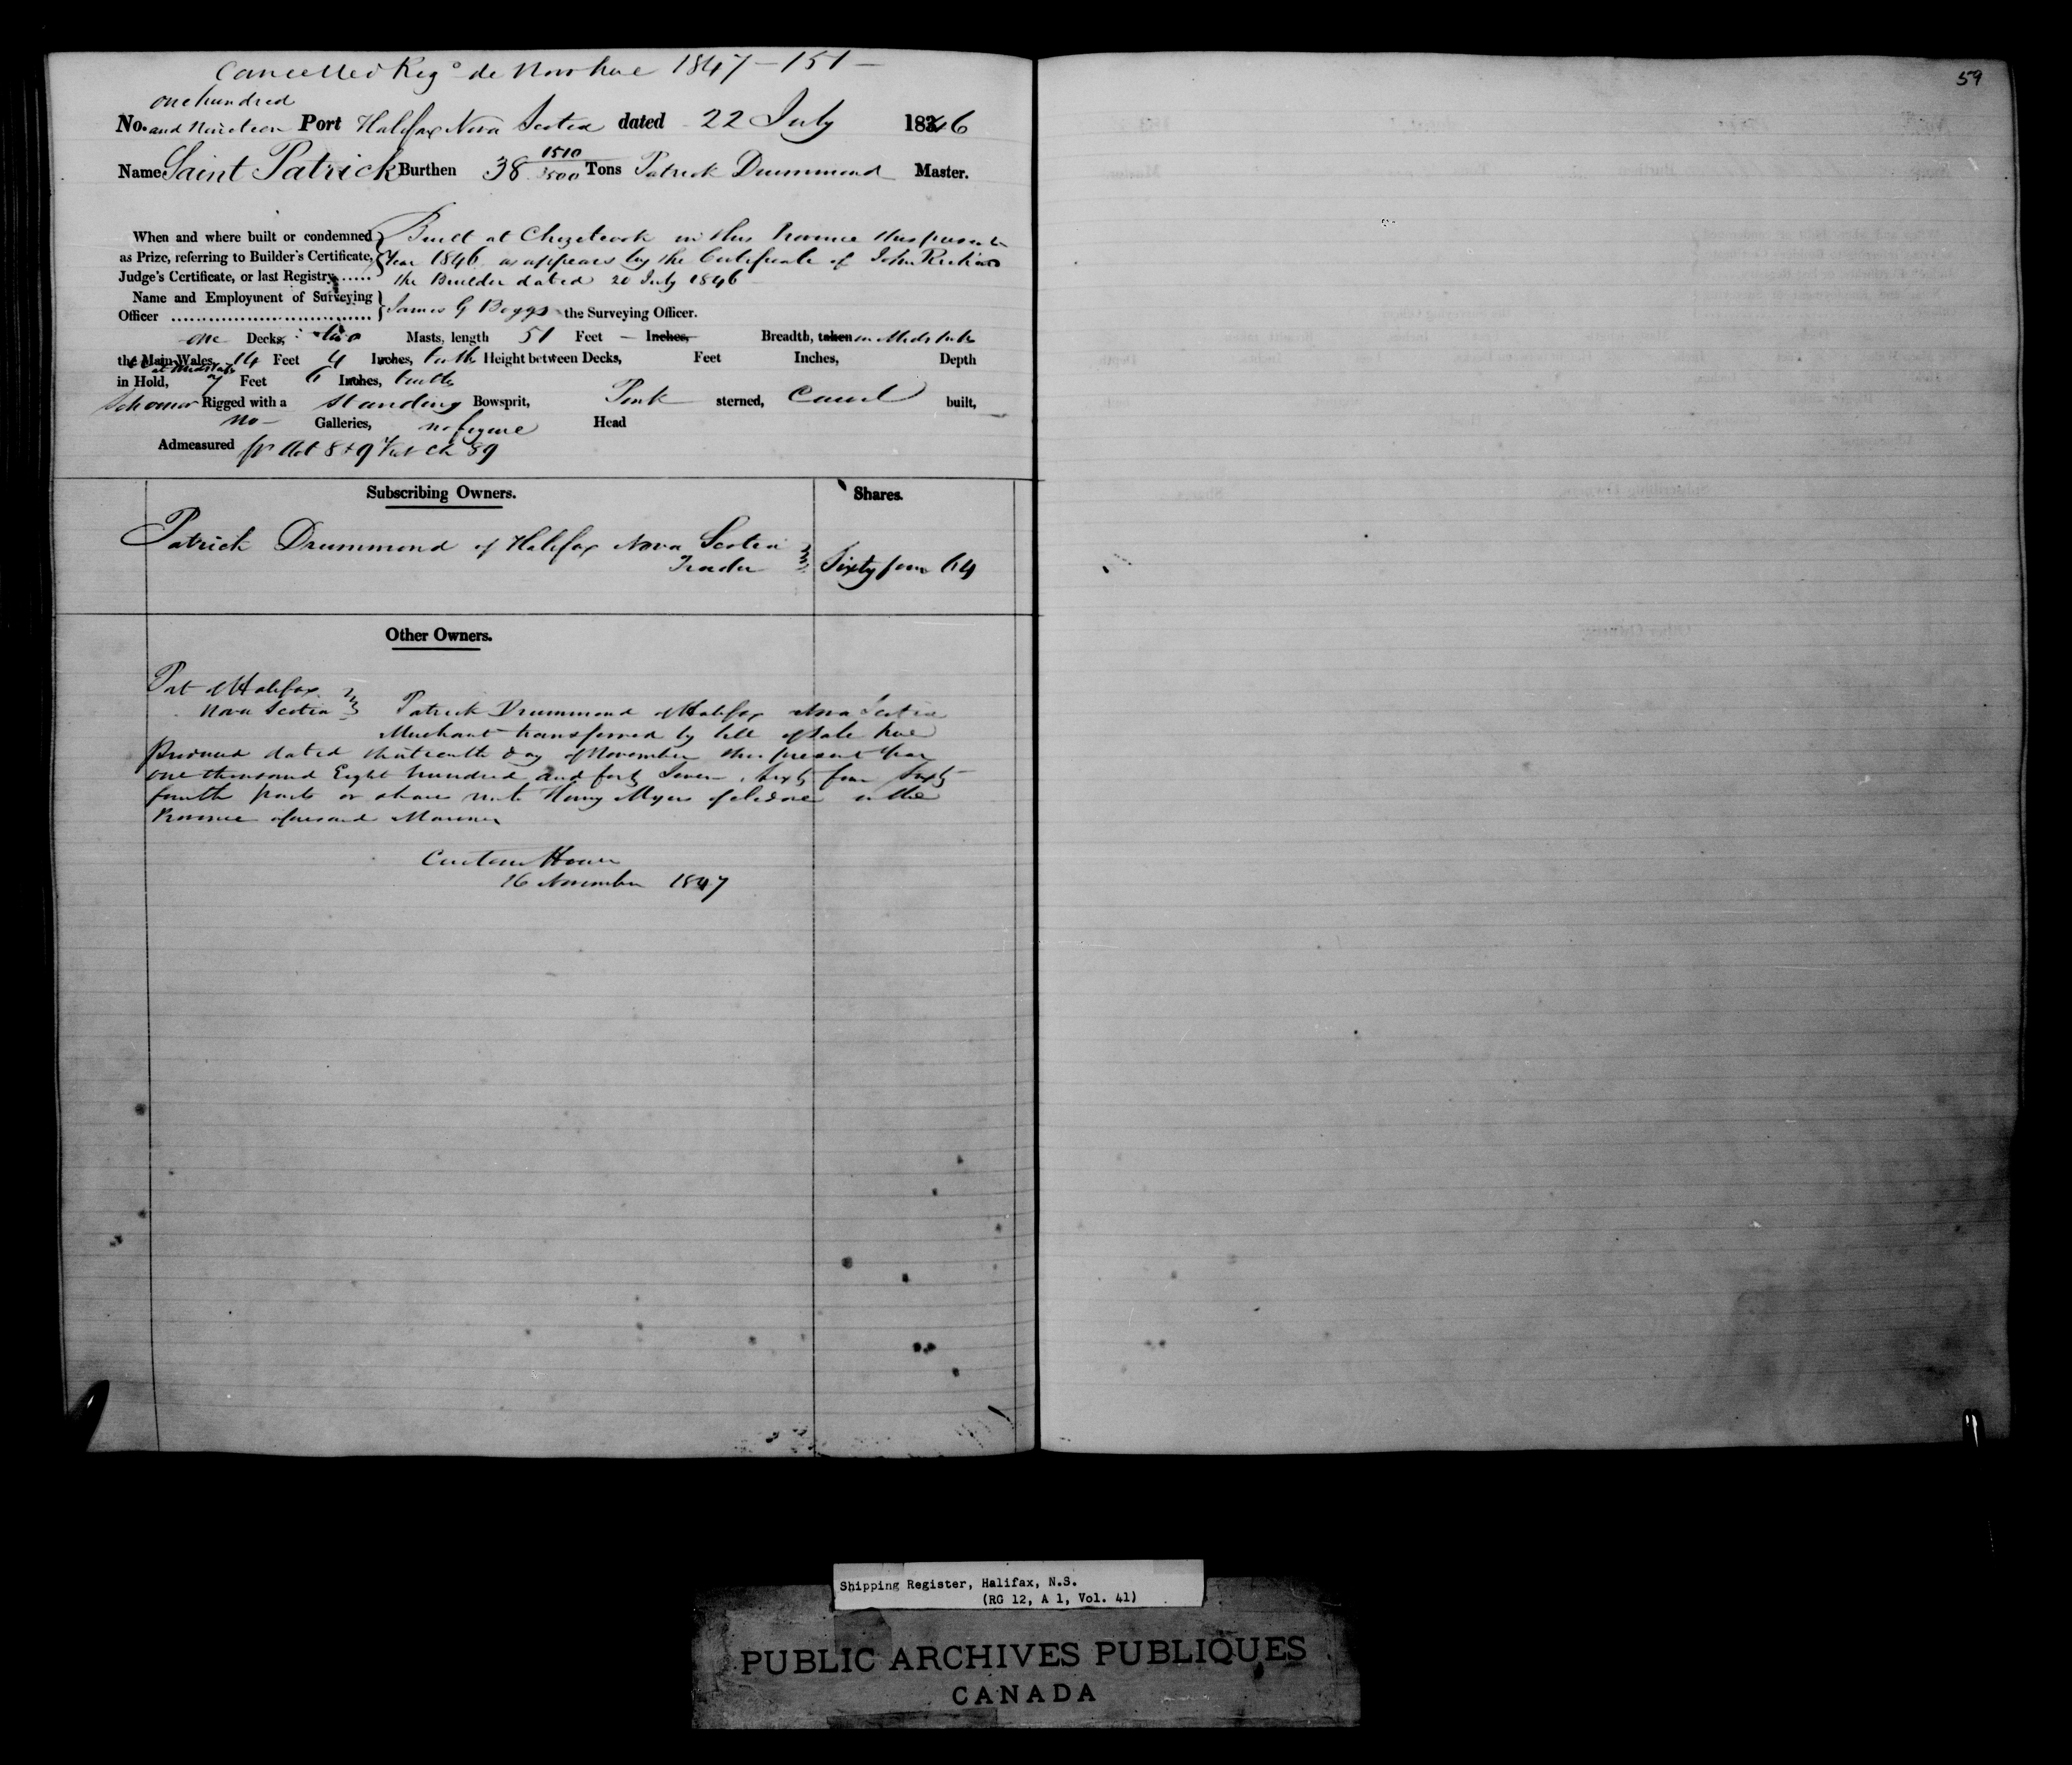 Cancelled Reg° de Novo here 1847 - 151 -
59
one hundred
No. and Nineteen Port Halifax Nova Scotia dated 22 July 1846
Name Saint Patrick Burthen 38 1510/3500 Tons Patrick Drummond Master.
When and where built or condemned as Prize, referring to Builder's Certificate, Judge's Certificate, or last Registry......
Built at Chezetcook in this Province this present
Year 1846 as appears by the Certificate of John
the Builder dated 20 July 1846
Name and Employment of Surveying
Officer .................... James G Boggs the Surveying Officer.
one Decks, two Masts, length 51 Feet - Inches, Breadth, taken in Midships
the Main Wales, 14 Feet 4 Inches, tenths Height between Decks, Feet Inches, Depth
at Midships
in Hold, 7 Feet 6 Inches, tenths
Schooner Rigged with a standing Bowsprit, Pink sterned, Carvel built,
no Galleries, no figure Head
Admeasured pr Act 8 & 9 Vict Ch 89
Subscribing Owners. Shares.
Patrick Drummond of Halifax Nova Scotia
Trader Sixty four 64
Other Owners.
Port of Halifax
Nova Scotia Patrick Drummond of Halifax Nova Scotia
Merchant transferred by bill of Sale here
produced dated thirteenth day of November this present Year
one thousand Eight hundred and forty Seven, Sixty four Sixty
fourth parts or shares unto Henry Myers of in the
Province aforesaid Mariner
Custom House
16 November 1847
Shipping Register, Halifax, N.S.
(RG 12, A 1, Vol. 41)
PUBLIC ARCHIVES PUBLIQUES
CANADA